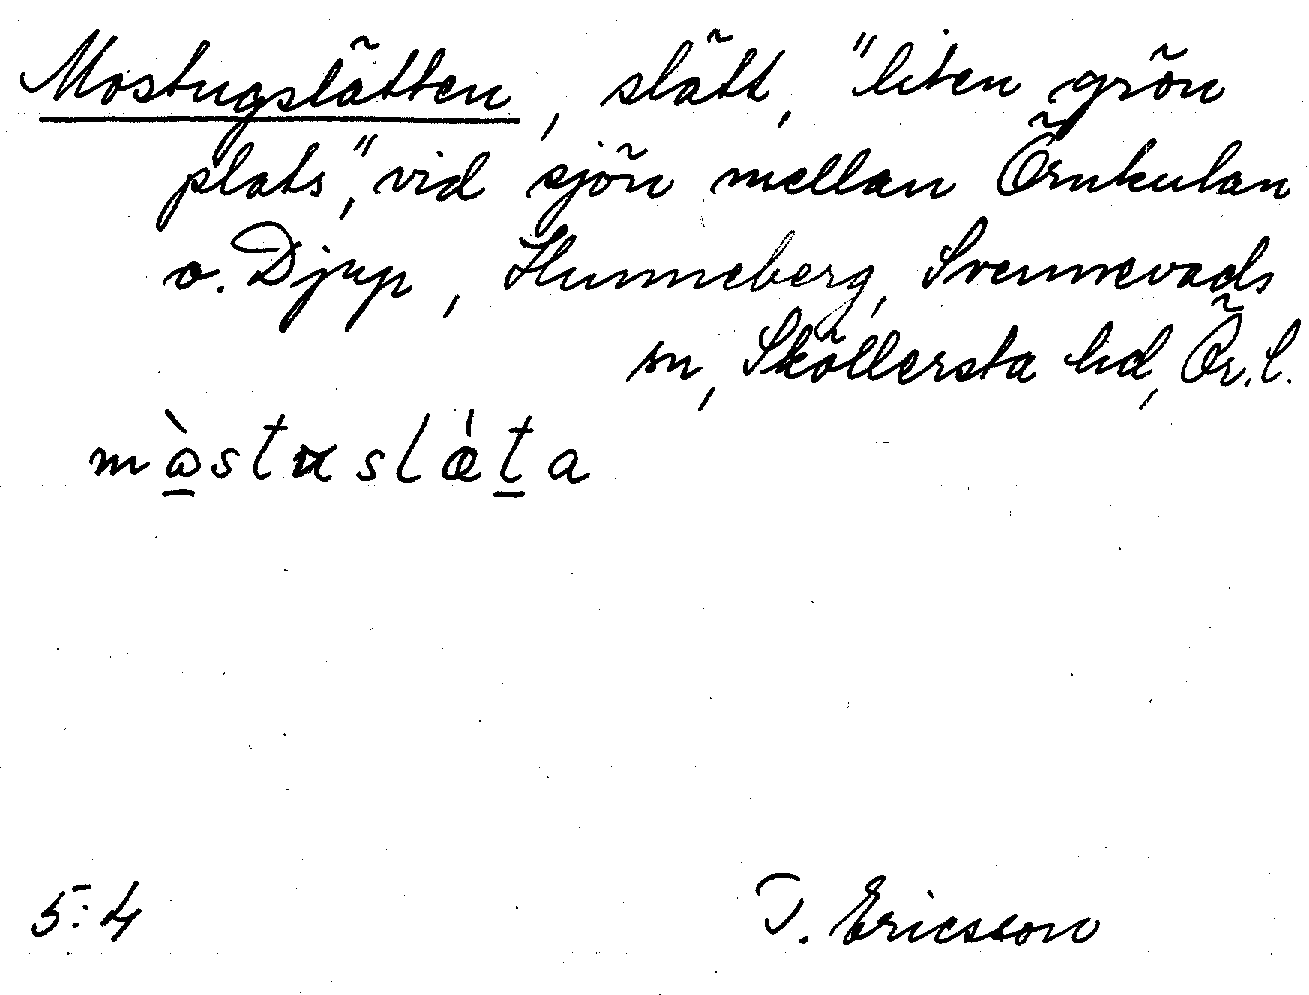 Mostugslätten, slätt, "liten grön
plats", vid sjön mellan Örnkulan
o. Djup, Hunneberg, Svennevads
sn, Sköllersta hd, Ör. l.
mὼ̲stɤslǽt̲a
5:4 T. Ericsson